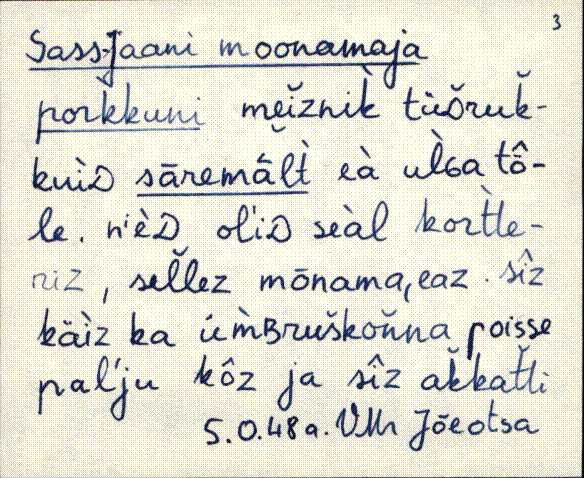 3
Sass-Jaani moonamaja
porkkuni mĕĭznik̀ tüŏ̀ruk̆-
kuìᴅ sāremâ̆lt̀ eà ùlGa tȭ-
le. n'èᴅ ol'iᴅ seàl kort̀le-
riz, sel̆lez mōnama,eaz. sîz
käìz ka úm̀ʙruškoñna poisse
pal'ju kôz ja sîz ak̆kat̆li
5.0.48a. VMr Jõeotsa